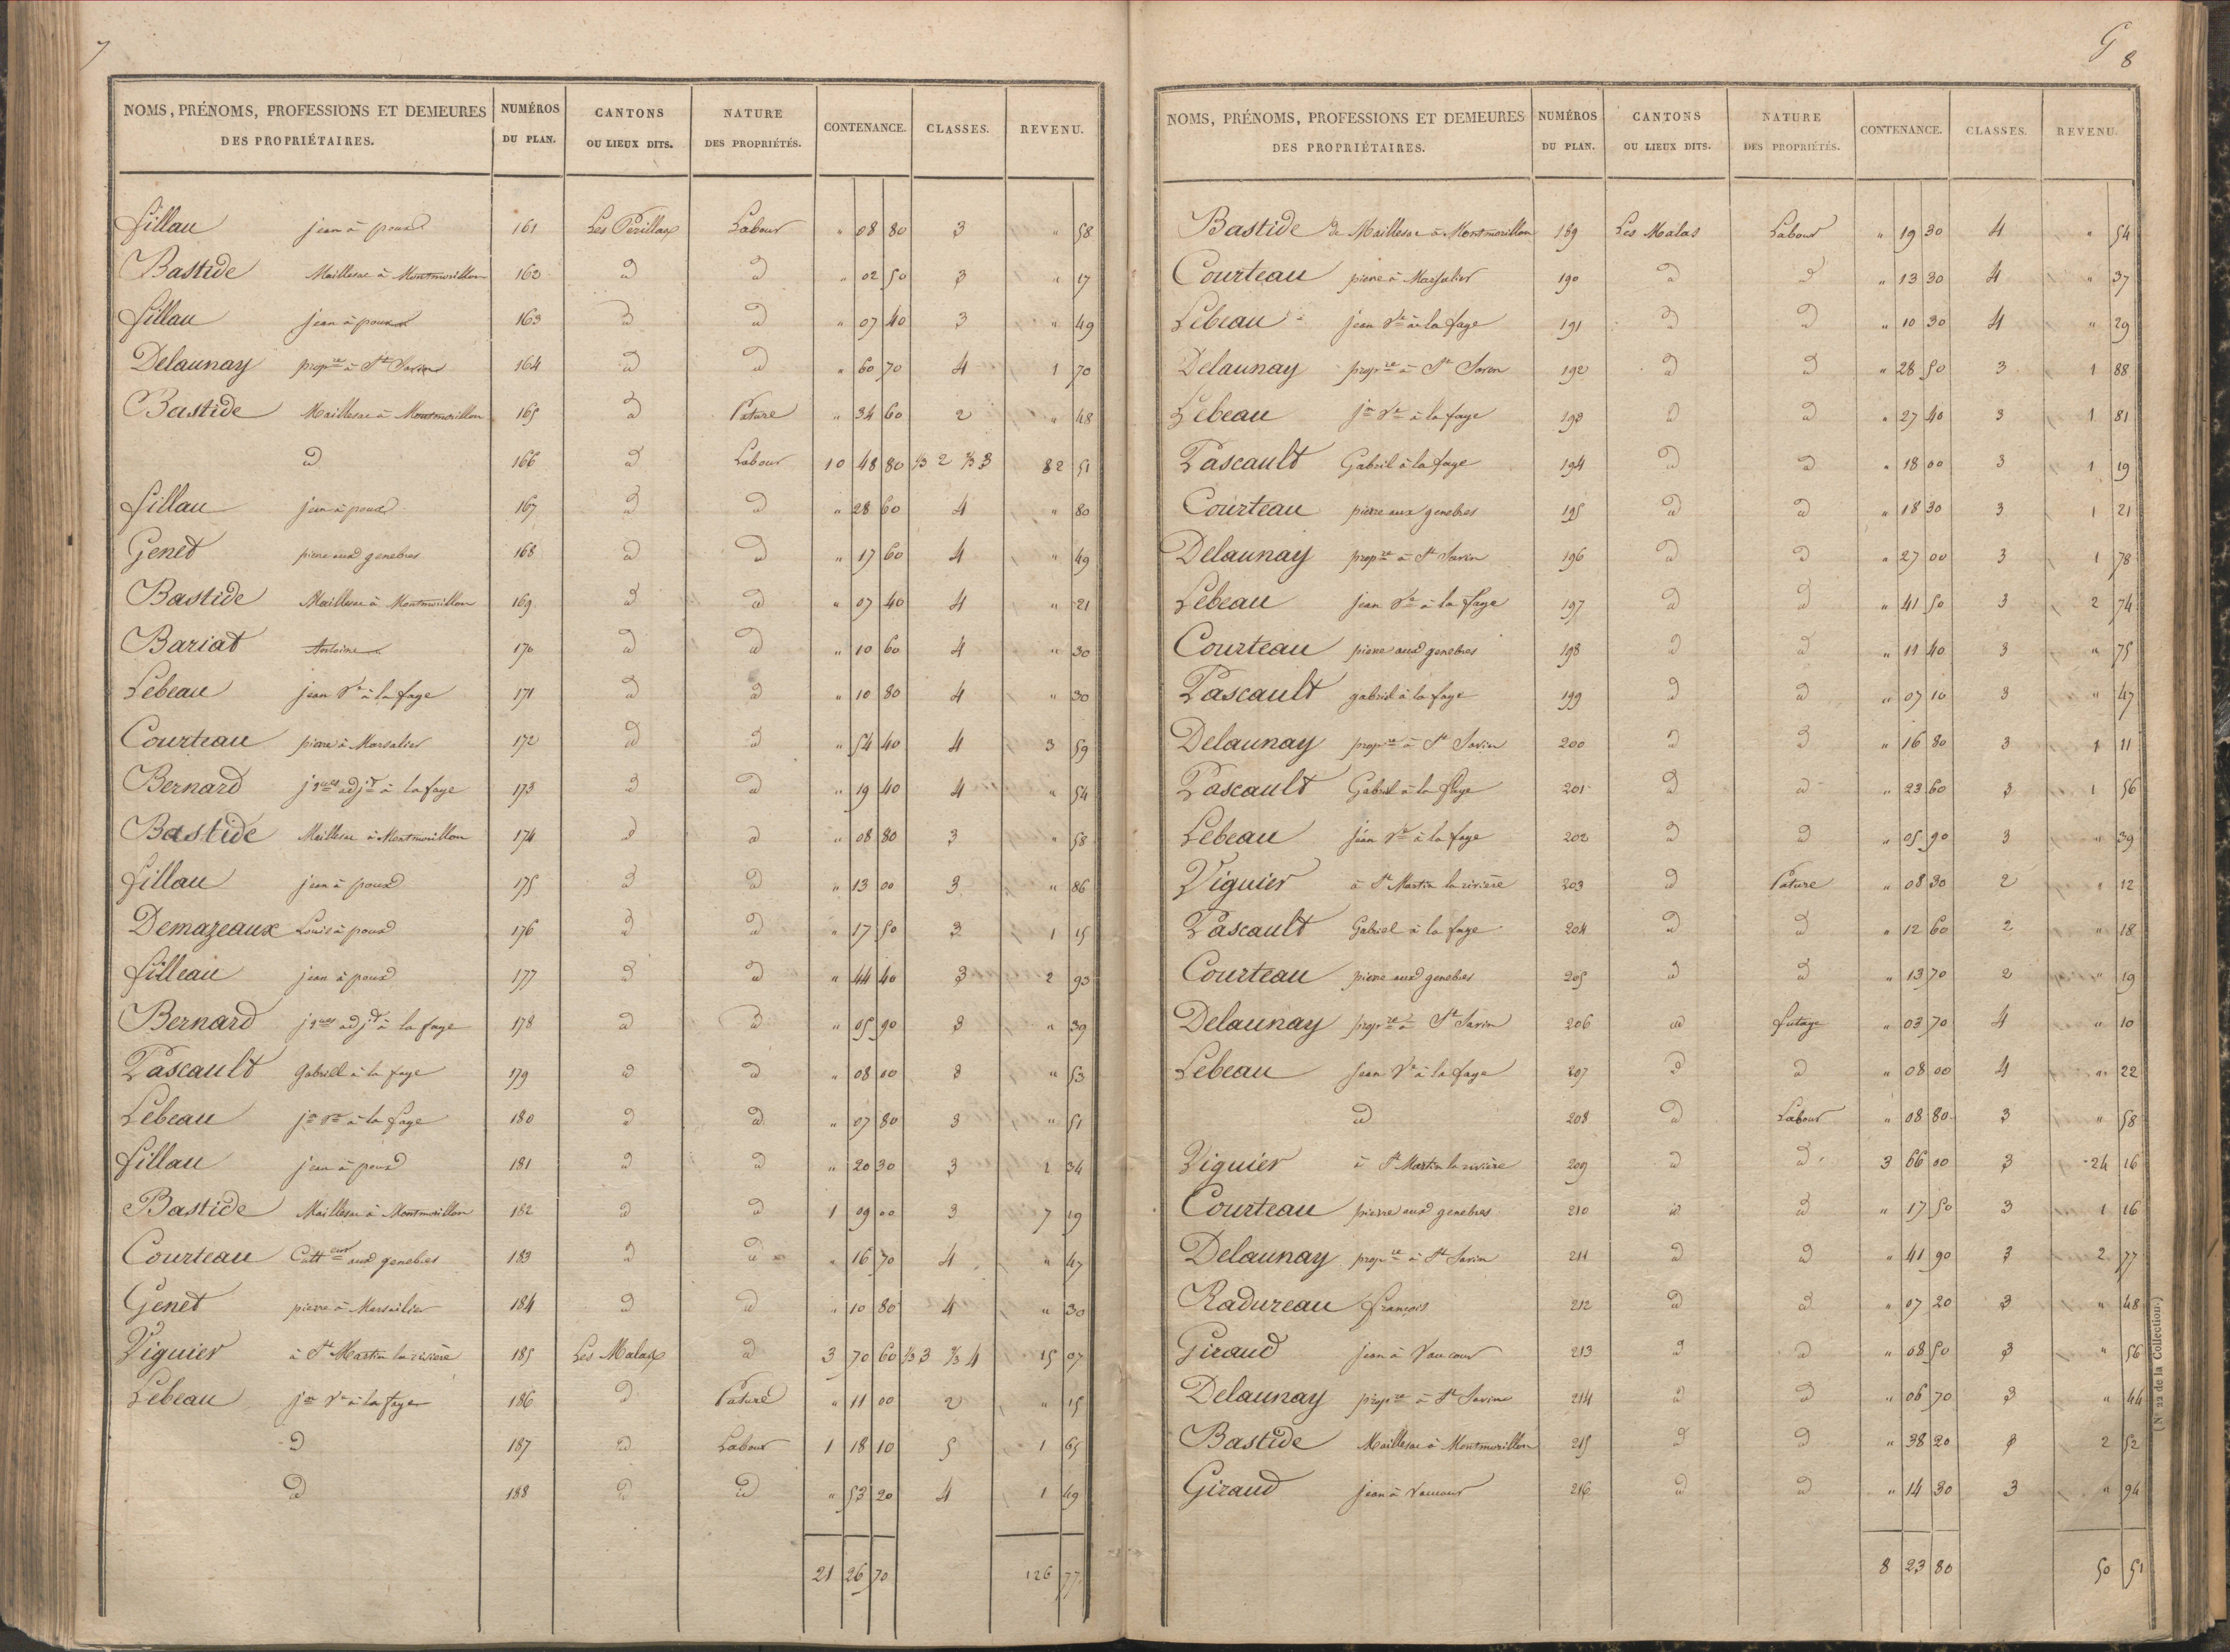 7
NOMS, PRÉNOMS, PROFESSIONS ET DEMEURES DES PROPRIÉTAIRES. NUMÉROS DU PLAN. CANTONS OU LIEUX DITS. NATURE DES PROPRIÉTÉS. CONTENANCE. CLASSES. REVENU.
fillau jean à poux 161 Les Perillax Labour " 08 80 3 " 58
Bastide Maillesac à Montmorillon 162 id id " 02 50 3 " 17
fillau jean à poux 163 id id " 07 40 3 " 49
Delaunay propre à St Savin 164 id id " 60 70 4 1 70
Bastide Maillesac à Montmorillon 165 id Pature " 34 60 2 " 48
id 166 id Labour 10 48 80 1/3 2 2/3 3 82 51
fillau jean à poux 167 id id " 28 60 4 " 80
Genet pierre aux genebres 168 id id " 17 60 4 " 49
Bastide Maillesac à Montmorillon 169 id id " 07 40 4 " 21
Bariat Antoine 170 id id " 10 60 4 " 30
Lebeau jean Ve à la faye 171 id id " 10 80 4 " 30
Courteau pierre à Marsalier 172 id id " 54 40 4 3 59
Bernard jques adjt à la faye 173 id id " 19 40 4 " 54
Bastide Maillesac à Montmorillon 174 id id " 08 80 3 " 58
fillau jean à poux 175 id id " 13 00 3 " 86
Demazeaux Louis à poux 176 id id " 17 50 3 1 15
filleau jean à poux 177 id id " 44 40 3 2 93
Bernard jques adjt à la faye 178 id id " 05 90 3 " 39
Pascault Gabriel à la faye 179 id id " 08 00 3 " 53
Lebeau jn Ve à la faye 180 id id " 07 80 3 " 51
fillau jean à poux 181 id id " 20 30 3 1 34
Bastide Maillesac à Montmorillon 182 id id 1 09 00 3 7 19
Courteau Cultteur aux genebres 183 id id " 16 70 4 " 47
Genet pierre à Marsailier 184 id id " 10 80 4 " 30
Viguier à St Martin la rivière 185 Les Malax id 3 70 60 1/3 3 2/3 4 15 07
Lebeau jn Ve à la faye 186 id Pature " 11 00 2 " 15
id 187 id Labour 1 18 10 5 1 65
id 188 id id " 53 20 4 1 49
21 26 70 126 77
8
NOMS, PRÉNOMS, PROFESSIONS ET DEMEURES DES PROPRIÉTAIRES. NUMÉROS DU PLAN. CANTONS OU LIEUX DITS. NATURE DES PROPRIÉTÉS. CONTENANCE. CLASSES. REVENU.
Bastide de Maillesac à Montmorillon 189 Les Malas Labour " 19 30 4 " 54
Courteau pierre à Marsalier 190 id id " 13 30 4 " 37
Lebeau jean Ve à la faye 191 id id " 10 30 4 " 29
Delaunay propre à St Saven 192 id id " 28 50 3 1 88
Lebeau jn Ve à la faye 193 id id " 27 40 3 1 81
Pascault Gabriel à la faye 194 id id " 18 00 3 1 19
Courteau pierre aux genebres 195 id id " 18 30 3 1 21
Delaunay propre à St Saven 196 id id " 27 00 3 1 78
Lebeau jean Ve à la faye 197 id id " 41 50 3 2 74
Courteau pierre aux genebres 198 id id " 11 40 3 " 75
Pascault gabriel à la faye 199 id id " 07 10 3 " 47
Delaunay propre à St Savin 200 id id " 16 80 3 1 11
Pascault Gabriel à la faye 201 id id " 23 60 3 1 56
Lebeau jean Ve à la faye 202 id id " 05 90 3 " 39
Viguier à St Martin la rivière 203 id Pature " 08 30 2 " 12
Pascault Gabriel à la faye 204 id id " 12 60 2 " 18
Courteau pierre aux genebres 205 id id " 13 70 2 " 19
Delaunay propre à St Savin 206 id futaye " 03 70 4 " 10
Lebeau jean Ve à la faye 207 id id " 08 00 4 " 22
id 208 id Labour " 08 80 3 " 58
Viguier à St Martin la rivière 209 id id 3 66 00 3 24 16
Courteau pierre aux genebres 210 id id " 17 50 3 1 16
Delaunay propre à St Savin 211 id id " 41 90 3 2 77
Radureau françois 212 id id " 07 20 3 " 48
Giraud jean à Vaucour 213 id id " 08 50 3 " 56
Delaunay propre à St Savin 214 id id " 06 70 3 " 44
Bastide Maillesac à Montmorillon 215 id id " 38 20 3 2 52
Giraud jean à Vaucour 216 id id " 14 30 3 " 94
8 23 80 50 51
(No 22 de la Collection.)